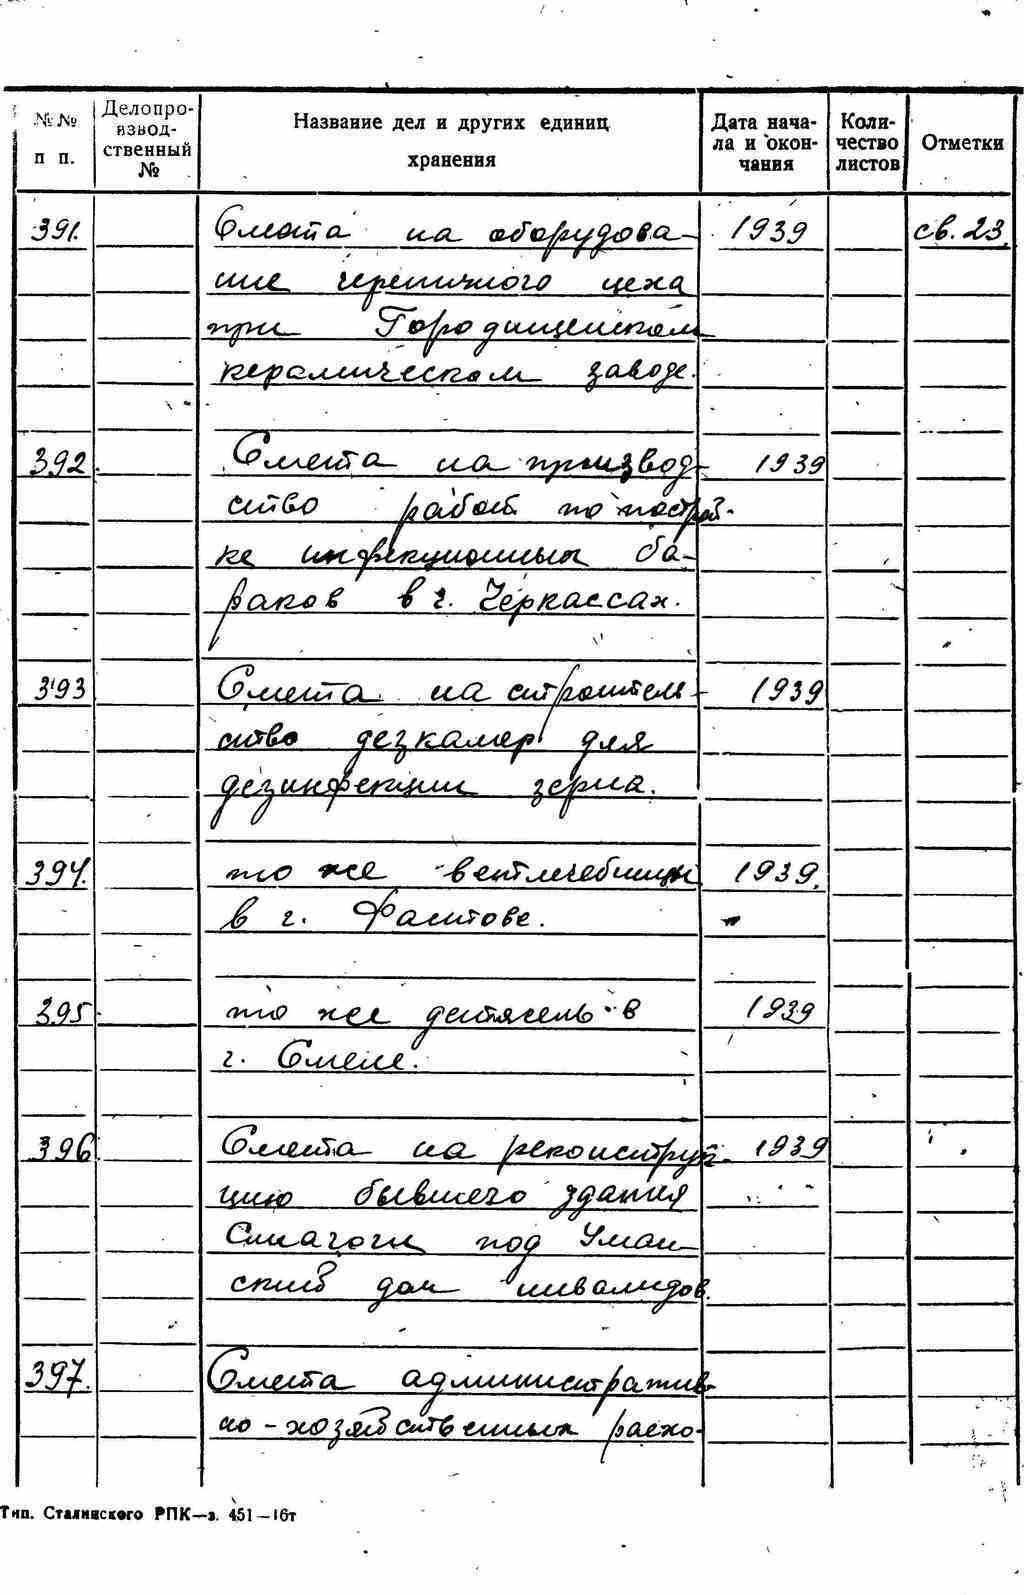 №№ п п.
Делопроизвод-
ственный
№
Название дел и других единиц
хранения
Дата нача-
ла и окон-
чания
Коли-
чество
листов
Отметки
391. Смета на оборудова- 1939 св. 23.
ние черепичного цеха
при Городищенском
керамическом заводе.
392. Смета на производ- 1939
ство работ по построй-
ке инфекционных ба-
раков в г. Черкассах.
393 Смета на строитель- 1939
ство дезкамер для
дезинфекции зерна.
394. то же ветлечебницы 1939.
в г. Фастове.
395 то же детясель в 1939
г. Смеле.
396 Смета на реконструк- 1939
цию бывшего здания
Синагоги под Уман-
ский дом инвалидов.
397. Смета административ-
но-хозяйственных расхо-
Тип. Сталинского РПК—з. 451—16т